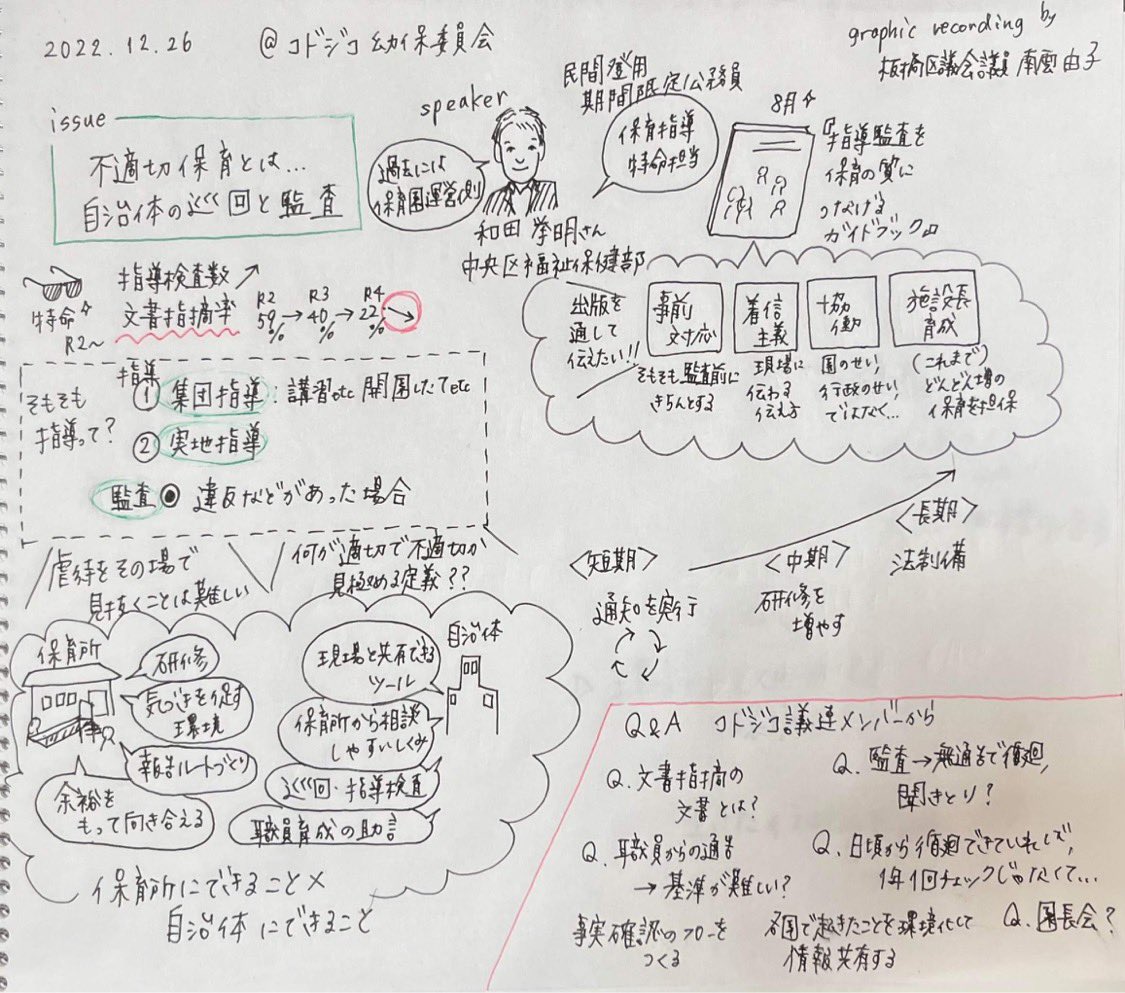 2022.12.26 @コドジコ幼保委員会
graphic recording by
板橋区議会議員 南雲由子
issue
不適切保育とは…
自治体の巡回と監査
speaker
過去には
保育園運営側
和田 挙明さん
中央区福祉保健部
民間登用
期間限定公務員
保育指導
特命担当
8月↑
『指導監査を
保育の質に
つなげる
ガイドブック』
出版を
通して
伝えたい!!
事前
対応
そもそも監査前に
きちんとする
着信
主義
現場に
伝わる
伝え方
協
働
園のせい,
行政のせい,
ではなく…
施設長
育成
(これまで)
どんどん増の
保育を担保
特命↑
R2〜
指導検査数 ↗
文書指摘率
R2 59% → R3 40% → R4 22% →
そもそも
指導って?
指導
① 集団指導:講習etc 開園したてetc
② 実地指導
監査 ◉ 違反などがあった場合
虐待をその場で
見抜くことは難しい
何が適切で不適切か
見極める定義??
保育所
研修
気づきを促す
環境
報告ルートづくり
余裕を
もって向き合える
自治体
現場と共有できる
ツール
保育所から相談
しやすいしくみ
巡回・指導検査
職員育成の助言
保育所にできること×
自治体にできること
<短期>
通知を実行
<中期>
研修を
増やす
<長期>
法制備
Q&A コドジコ議連メンバーから
Q. 文書指摘の
文書とは?
Q. 監査→無通告で巡廻,
聞きとり?
Q. 職員からの通告
→基準が難しい?
Q. 日頃から巡廻できていれば,
1年1回チェックじゃなくて…
事実確認のフローを
つくる
各園で起きたことを環境化して
情報共有する
Q. 園長会?